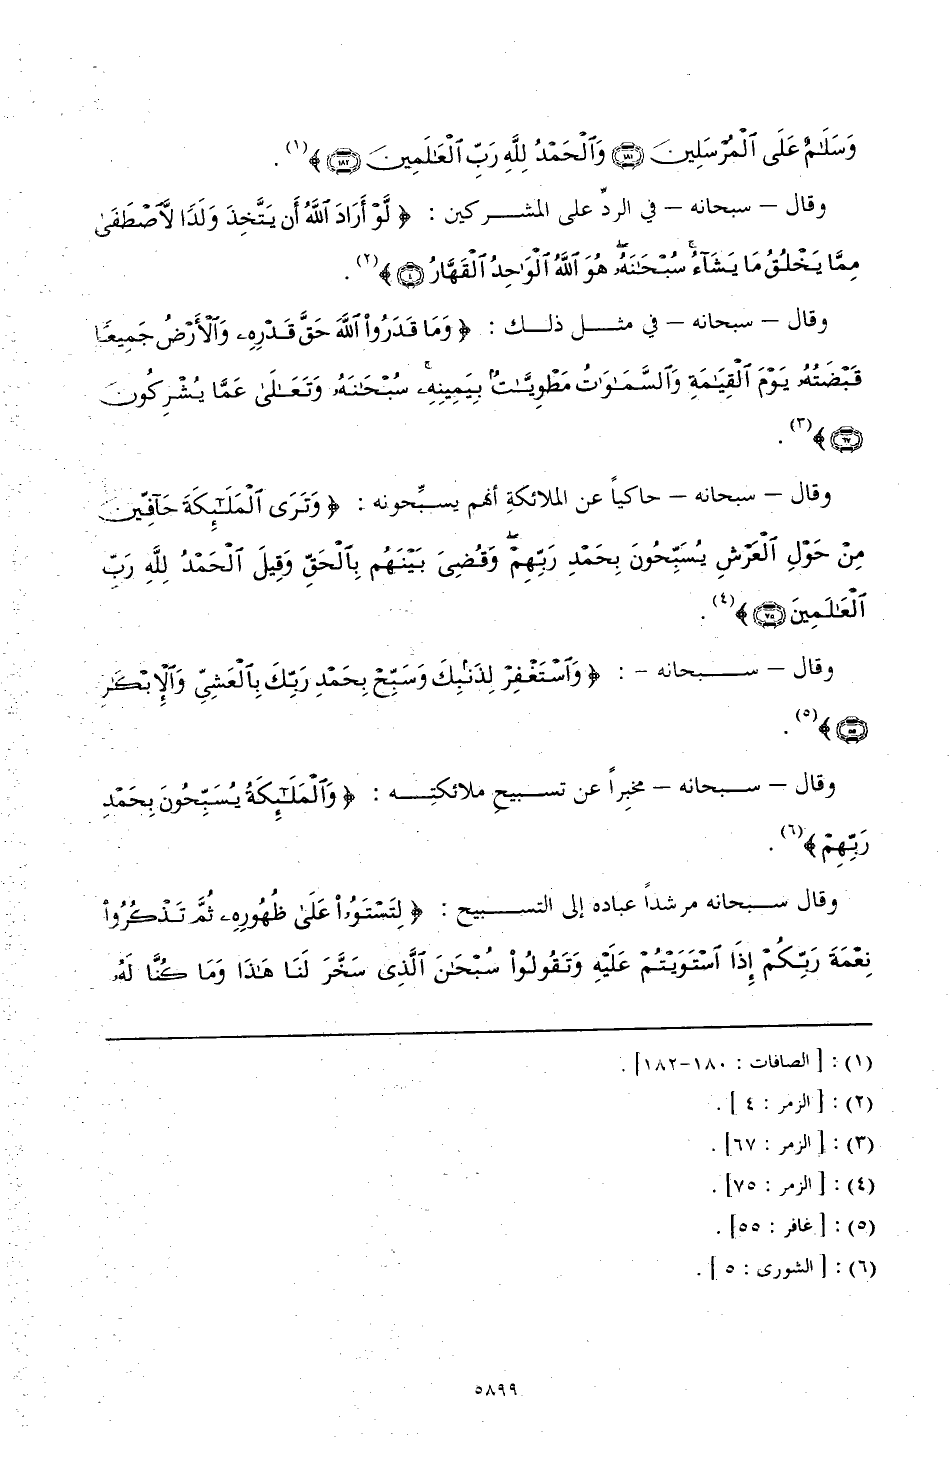 وَسَلَٰمٌ عَلَى ٱلْمُرْسَلِينَ ﴿١٨١﴾ وَٱلْحَمْدُ لِلَّهِ رَبِّ ٱلْعَٰلَمِينَ ﴿١٨٢﴾ ﴾(١) .
وقال – سبحانه – في الردِّ على المشركين : ﴿ لَّوْ أَرَادَ ٱللَّهُ أَن يَتَّخِذَ وَلَدًا لَّٱصْطَفَىٰ
مِمَّا يَخْلُقُ مَا يَشَآءُ ۚ سُبْحَٰنَهُۥ ۖ هُوَ ٱللَّهُ ٱلْوَٰحِدُ ٱلْقَهَّارُ ﴿٤﴾ ﴾(٢) .
وقال – سبحانه – في مثل ذلك : ﴿ وَمَا قَدَرُوا۟ ٱللَّهَ حَقَّ قَدْرِهِۦ وَٱلْأَرْضُ جَمِيعًا
قَبْضَتُهُۥ يَوْمَ ٱلْقِيَٰمَةِ وَٱلسَّمَٰوَٰتُ مَطْوِيَّٰتٌۢ بِيَمِينِهِۦ ۚ سُبْحَٰنَهُۥ وَتَعَٰلَىٰ عَمَّا يُشْرِكُونَ
﴿٦٧﴾ ﴾(٣) .
وقال – سبحانه – حاكياً عن الملائكةِ أنهم يسبِّحونه : ﴿ وَتَرَى ٱلْمَلَٰٓئِكَةَ حَآفِّينَ
مِنْ حَوْلِ ٱلْعَرْشِ يُسَبِّحُونَ بِحَمْدِ رَبِّهِمْ ۖ وَقُضِىَ بَيْنَهُم بِٱلْحَقِّ وَقِيلَ ٱلْحَمْدُ لِلَّهِ رَبِّ
ٱلْعَٰلَمِينَ ﴿٧٥﴾ ﴾(٤) .
وقال – سبحانه - : ﴿ وَٱسْتَغْفِرْ لِذَنۢبِكَ وَسَبِّحْ بِحَمْدِ رَبِّكَ بِٱلْعَشِىِّ وَٱلْإِبْكَٰرِ
﴿٥٥﴾ ﴾(٥) .
وقال – سبحانه – مخبراً عن تسبيحِ ملائكتِه : ﴿ وَٱلْمَلَٰٓئِكَةُ يُسَبِّحُونَ بِحَمْدِ
رَبِّهِمْ ﴾(٦) .
وقال سبحانه مرشداً عباده إلى التسبيح : ﴿ لِتَسْتَوُۥا۟ عَلَىٰ ظُهُورِهِۦ ثُمَّ تَذْكُرُوا۟
نِعْمَةَ رَبِّكُمْ إِذَا ٱسْتَوَيْتُمْ عَلَيْهِ وَتَقُولُوا۟ سُبْحَٰنَ ٱلَّذِى سَخَّرَ لَنَا هَٰذَا وَمَا كُنَّا لَهُۥ
(١) : [ الصافات : ١٨٠-١٨٢] .
(٢) : [ الزمر : ٤ ] .
(٣) : [ الزمر : ٦٧] .
(٤) : [ الزمر : ٧٥] .
(٥) : [ غافر : ٥٥] .
(٦) : [ الشورى : ٥ ] .
٥٨٩٩